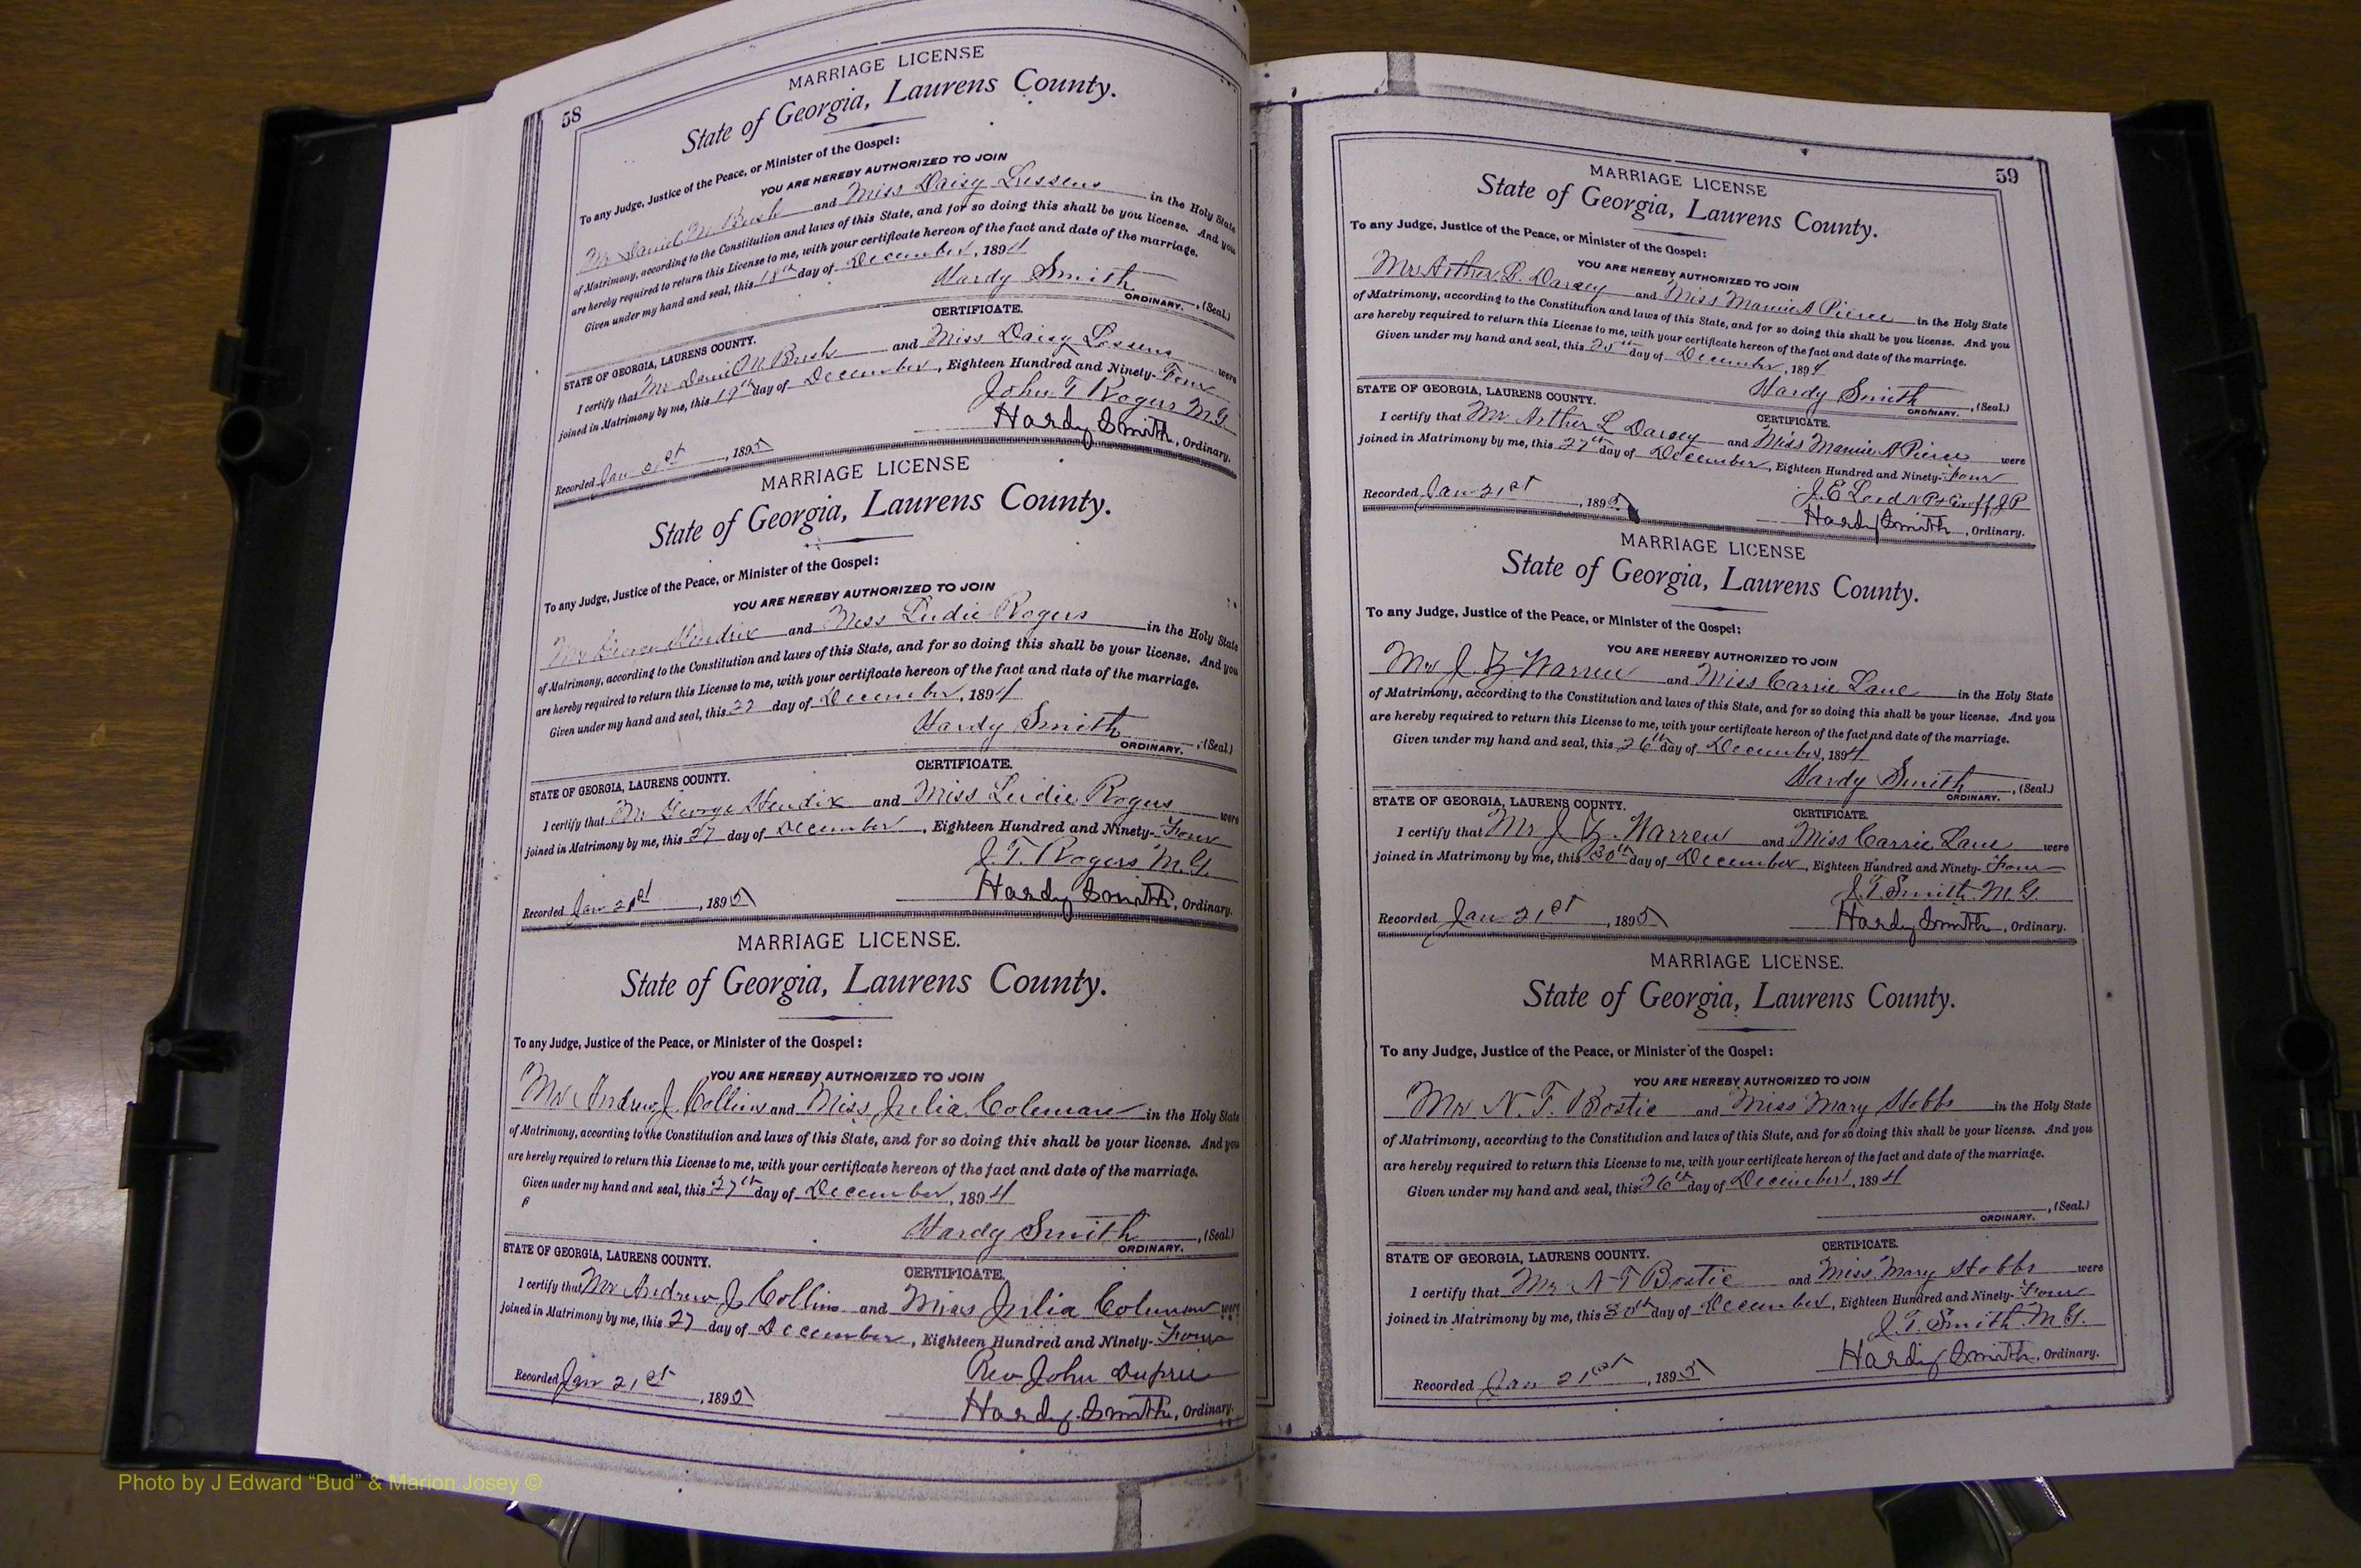 58
MARRIAGE LICENSE
State of Georgia, Laurens County.
To any Judge, Justice of the Peace, or Minister of the Gospel:
YOU ARE HEREBY AUTHORIZED TO JOIN
Mr Daniel M. Bush and Miss Daisy in the Holy State
of Matrimony, according to the Constitution and laws of this State, and for so doing this shall be you license. And you
are hereby required to return this License to me, with your certificate hereon of the fact and date of the marriage.
Given under my hand and seal, this 18th day of December, 1894
Hardy Smith
ORDINARY. , (Seal.)
CERTIFICATE.
STATE OF GEORGIA, LAURENS COUNTY.
I certify that Mr Daniel M Bush and Miss Daisy were
joined in Matrimony by me, this 19th day of December, Eighteen Hundred and Ninety-Four
John T Rogers M.G.
Hardy Smith, Ordinary.
Recorded Jan 21st, 1895
MARRIAGE LICENSE
State of Georgia, Laurens County.
To any Judge, Justice of the Peace, or Minister of the Gospel:
YOU ARE HEREBY AUTHORIZED TO JOIN
Mr George Hendrix and Miss Ludie Rogers in the Holy State
of Matrimony, according to the Constitution and laws of this State, and for so doing this shall be your license. And you
are hereby required to return this License to me, with your certificate hereon of the fact and date of the marriage.
Given under my hand and seal, this 22 day of December, 1894
Hardy Smith
ORDINARY. , (Seal.)
CERTIFICATE.
STATE OF GEORGIA, LAURENS COUNTY.
I certify that Mr George Hendix and Miss Ludie Rogers were
joined in Matrimony by me, this 27 day of December, Eighteen Hundred and Ninety-Four
J. T. Rogers M.G.
Hardy Smith, Ordinary.
Recorded Jan 21st, 1895
MARRIAGE LICENSE.
State of Georgia, Laurens County.
To any Judge, Justice of the Peace, or Minister of the Gospel:
YOU ARE HEREBY AUTHORIZED TO JOIN
Mr Andrew J. Collins and Miss Julia Coleman in the Holy State
of Matrimony, according to the Constitution and laws of this State, and for so doing this shall be your license. And you
are hereby required to return this License to me, with your certificate hereon of the fact and date of the marriage.
Given under my hand and seal, this 27th day of December, 1894
Hardy Smith
ORDINARY. , (Seal.)
CERTIFICATE.
STATE OF GEORGIA, LAURENS COUNTY.
I certify that Mr Andrew J Collins and Miss Julia Coleman were
joined in Matrimony by me, this 27 day of December, Eighteen Hundred and Ninety-Four
Rev John Dupree
Hardy Smith, Ordinary.
Recorded Jan 21st, 1895
59
MARRIAGE LICENSE
State of Georgia, Laurens County.
To any Judge, Justice of the Peace, or Minister of the Gospel:
YOU ARE HEREBY AUTHORIZED TO JOIN
Mr Arther L. Darsey and Miss Mamie A Pierce in the Holy State
of Matrimony, according to the Constitution and laws of this State, and for so doing this shall be you license. And you
are hereby required to return this License to me, with your certificate hereon of the fact and date of the marriage.
Given under my hand and seal, this 25th day of December, 1894
Hardy Smith
ORDINARY. , (Seal.)
CERTIFICATE.
STATE OF GEORGIA, LAURENS COUNTY.
I certify that Mr Arther L Darsey and Miss Mamie A Pierce were
joined in Matrimony by me, this 27th day of December, Eighteen Hundred and Ninety-Four
J. E Lord J P
Hardy Smith, Ordinary.
Recorded Jan 21st, 1895
MARRIAGE LICENSE
State of Georgia, Laurens County.
To any Judge, Justice of the Peace, or Minister of the Gospel:
YOU ARE HEREBY AUTHORIZED TO JOIN
Mr J. Z. Warren and Miss Carrie Lane in the Holy State
of Matrimony, according to the Constitution and laws of this State, and for so doing this shall be your license. And you
are hereby required to return this License to me, with your certificate hereon of the fact and date of the marriage.
Given under my hand and seal, this 26th day of December, 1894
Hardy Smith
ORDINARY. , (Seal.)
CERTIFICATE.
STATE OF GEORGIA, LAURENS COUNTY.
I certify that Mr J Z. Warren and Miss Carrie Lane were
joined in Matrimony by me, this 30th day of December, Eighteen Hundred and Ninety-Four
J. T. Smith M.G.
Hardy Smith, Ordinary.
Recorded Jan 21st, 1895
MARRIAGE LICENSE.
State of Georgia, Laurens County.
To any Judge, Justice of the Peace, or Minister of the Gospel:
YOU ARE HEREBY AUTHORIZED TO JOIN
Mr N. T. Bostic and Miss Mary Stobbs in the Holy State
of Matrimony, according to the Constitution and laws of this State, and for so doing this shall be your license. And you
are hereby required to return this License to me, with your certificate hereon of the fact and date of the marriage.
Given under my hand and seal, this 26th day of December, 1894
ORDINARY. , (Seal.)
CERTIFICATE.
STATE OF GEORGIA, LAURENS COUNTY.
I certify that Mr N T Bostic and Miss Mary Stobbs were
joined in Matrimony by me, this 30th day of December, Eighteen Hundred and Ninety-Four
J. T. Smith M.G.
Hardy Smith, Ordinary.
Recorded Jan 21st, 1895
Photo by J Edward “Bud” & Marion Josey ©